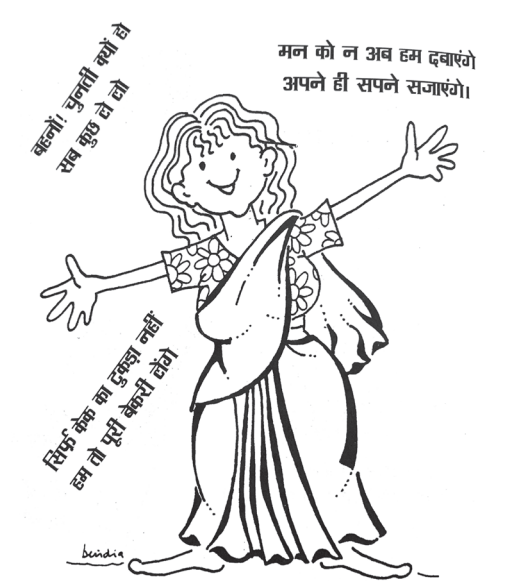 बहनों! चुनती क्यों हो
सब कुछ ले लो
मन को न अब हम दबाएंगे
अपने ही सपने सजाएंगे।
सिर्फ़ केक का टुकड़ा नहीं
हम तो पूरी बेकरी लेंगे
bindia